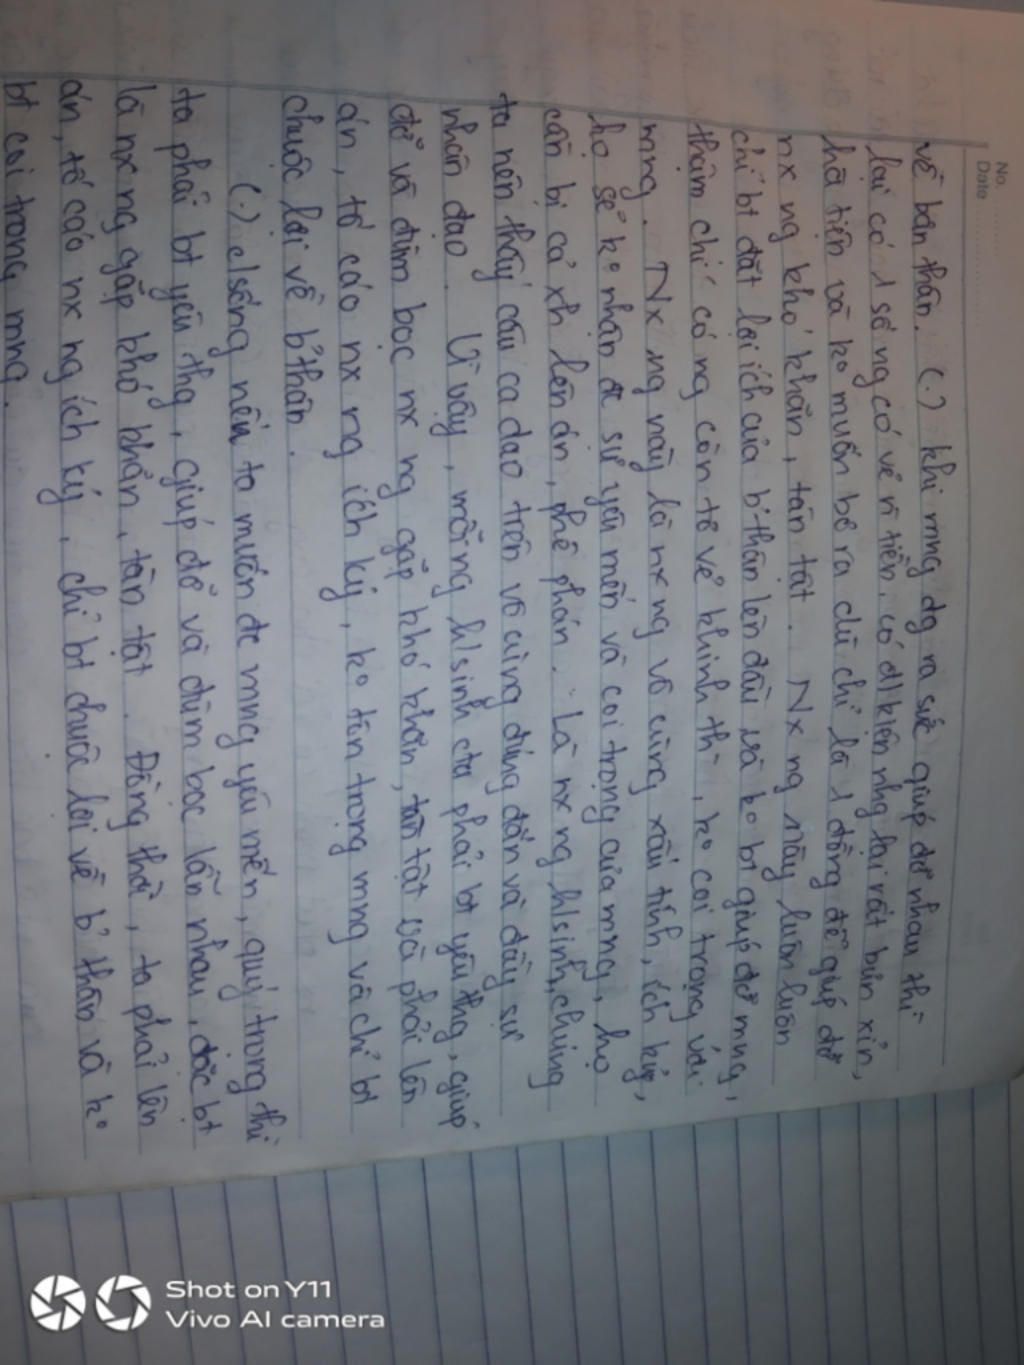 No.
Date
về bản thân. (.) khi mng dg ra sức giúp đỡ nhau thì
lại có 1 số ng có vẻ n tiền, có đ/kiện nhg lại rất bủn xỉn,
hà tiện và ko muốn bỏ ra dù chỉ là 1 đồng để giúp đỡ
nx ng khó khăn, tàn tật. Nx ng này luôn luôn
chỉ bt đặt lợi ích của b'thân lên đầu và ko bt giúp đỡ mng,
thậm chí có ng còn tỏ vẻ khinh th , ko coi trọng với
mng. Nx ng này là nx ng vô cùng xấu tính, ích kỷ,
họ sẽ ko nhận đc sự yêu mến và coi trọng của mng, họ
cần bị cả xh lên án, phê phán. Là nx ng h/sinh, chúng
ta nên thấy câu ca dao trên vô cùng đúng đắn và đầy sự
nhân đạo. Vì vậy, mỗi ng h/sinh cta phải bt yêu thg, giúp
đỡ và đùm bọc nx ng gặp khó khăn, tàn tật và phải lên
án, tố cáo nx ng ích kỷ, ko tôn trọng mng và chỉ bt
chuộc lợi về b'thân.
(.) c/sống nếu ta muốn đc mng yêu mến, quý trọng thì
ta phải bt yêu thg, giúp đỡ và đùm bọc lẫn nhau, đặc bt
là nx ng gặp khó khăn, tàn tật. Đồng thời, ta phải lên
án, tố cáo nx ng ích kỷ, chỉ bt chuộc lợi về b' thân và ko
bt coi trọng mng.
Shot on Y11
Vivo AI camera